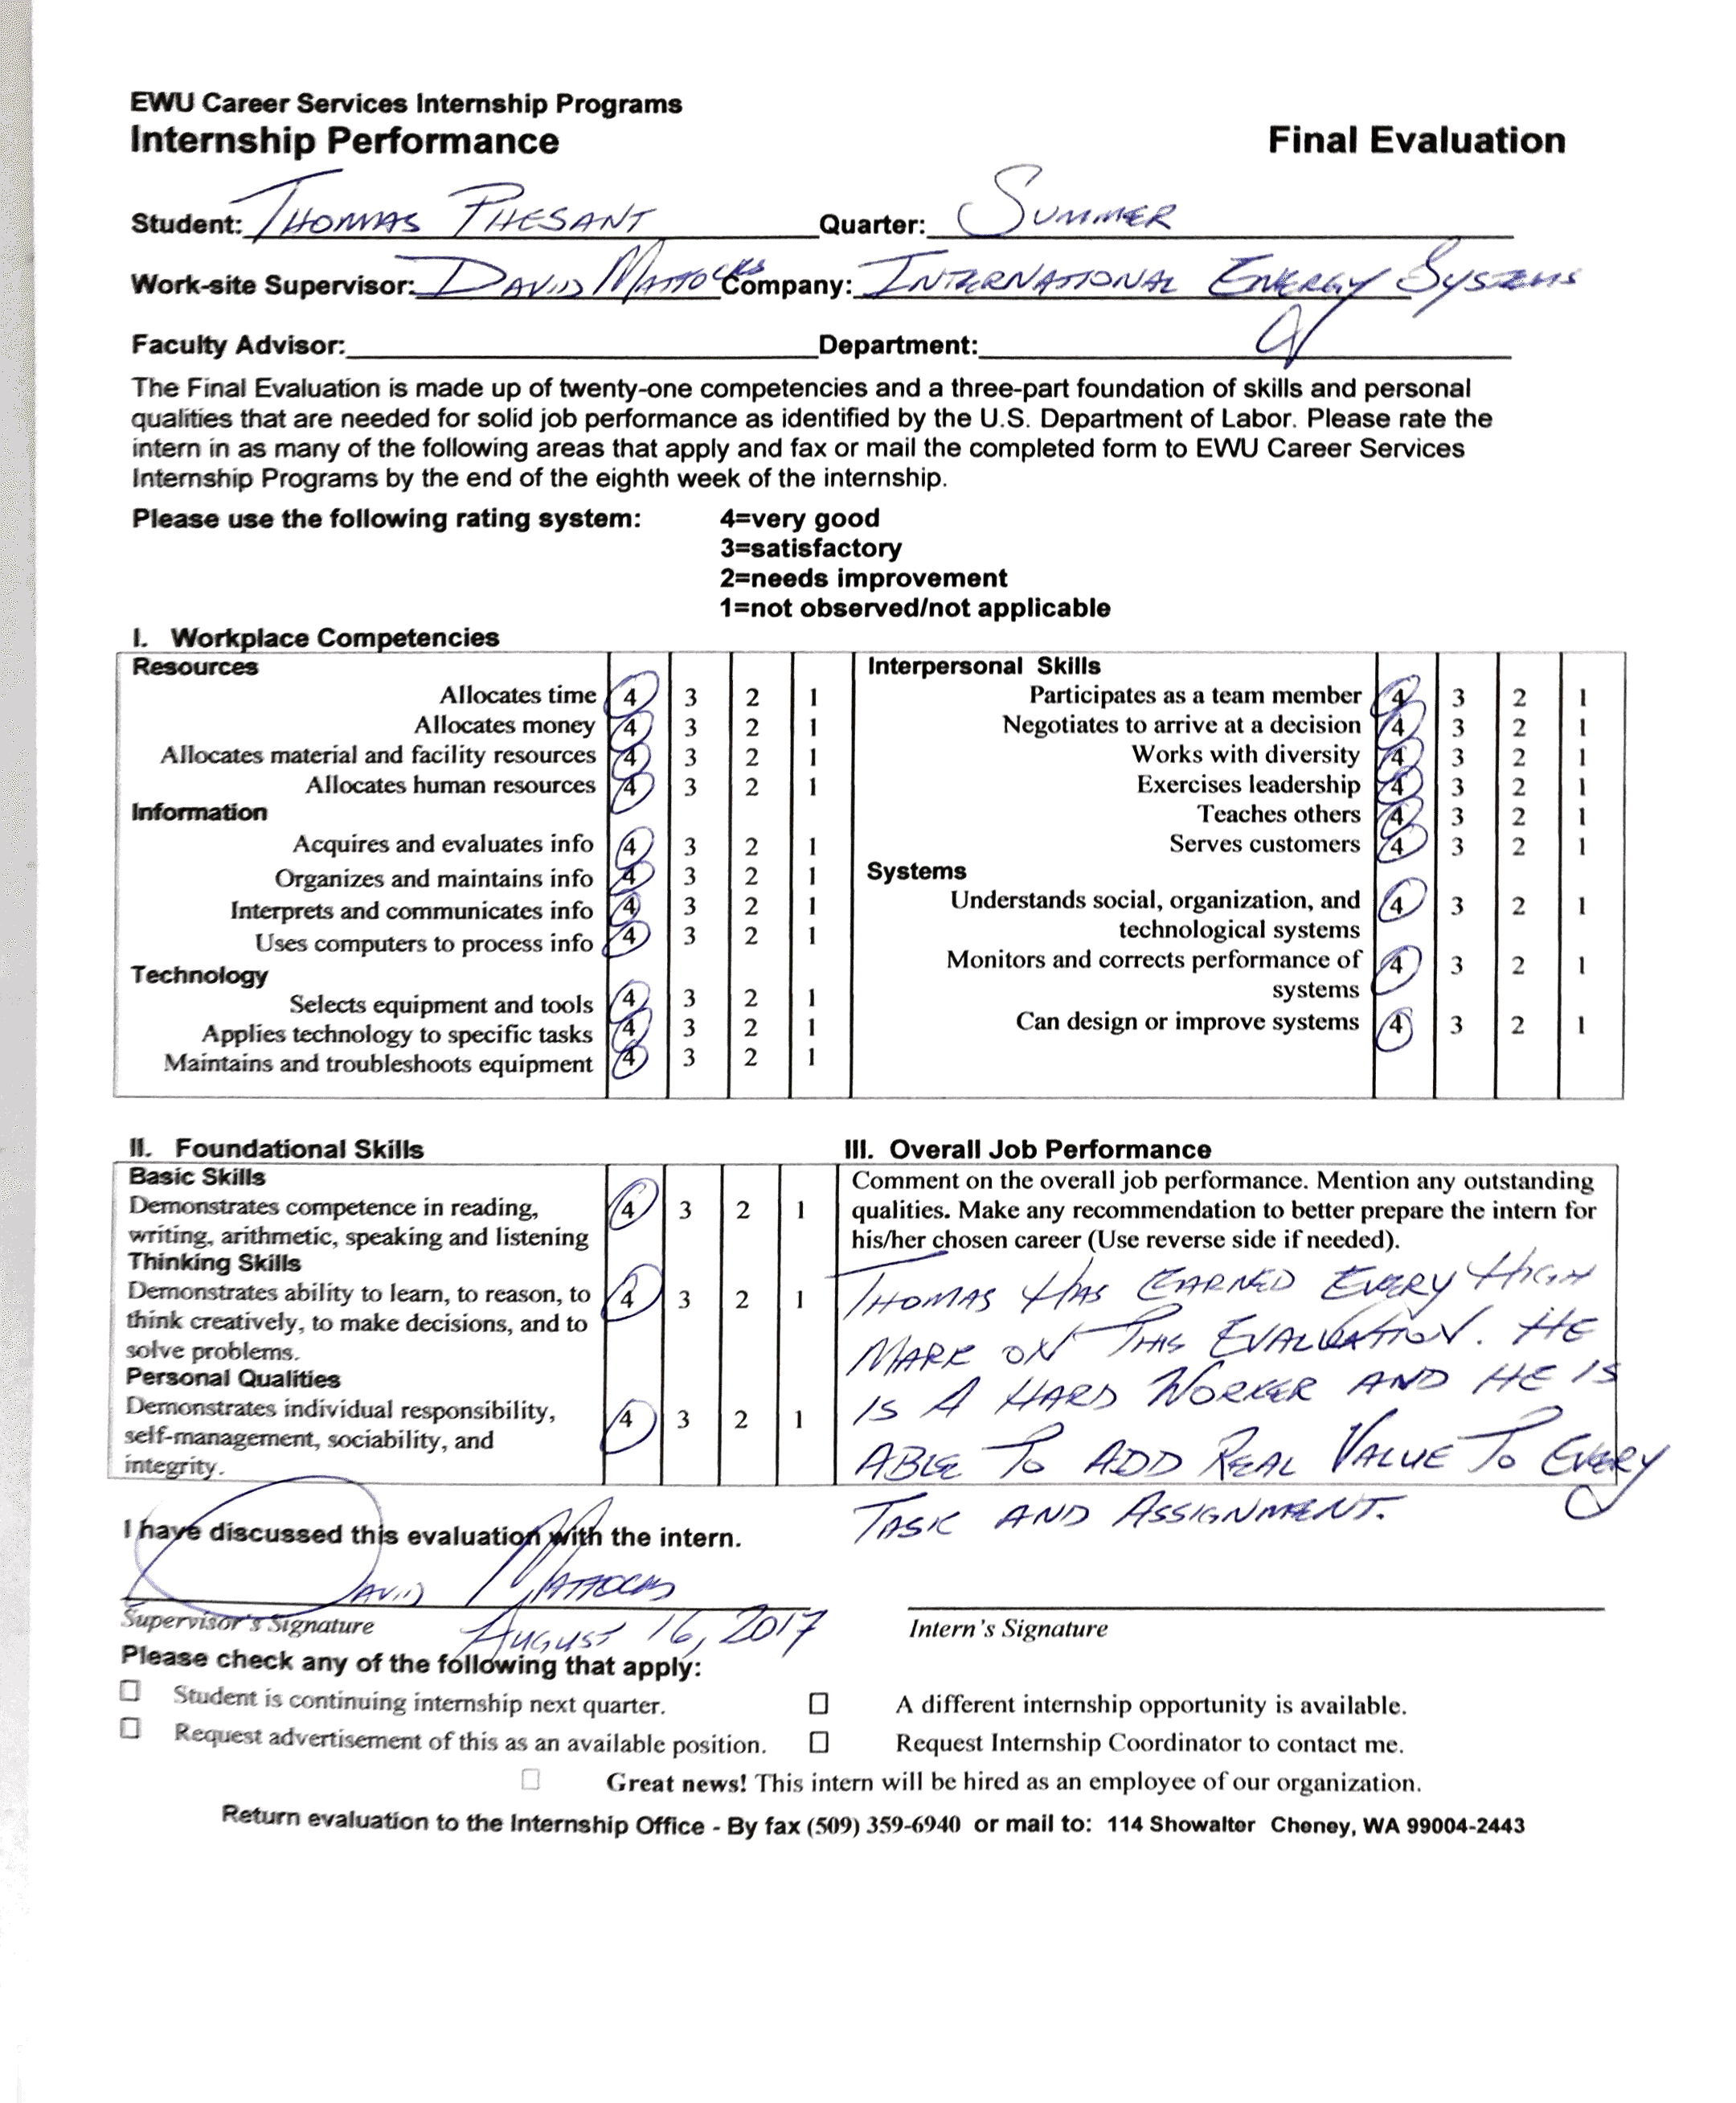 EWU Career Services Internship Programs
Internship Performance Final Evaluation
Student: THOMAS PHESANT Quarter: SUMMER
Work-site Supervisor: DAVID MATTOCKS Company: INTERNATIONAL ENERGY SYSTEMS
Faculty Advisor: Department:
The Final Evaluation is made up of twenty-one competencies and a three-part foundation of skills and personal
qualities that are needed for solid job performance as identified by the U.S. Department of Labor. Please rate the
intern in as many of the following areas that apply and fax or mail the completed form to EWU Career Services
Internship Programs by the end of the eighth week of the internship.
Please use the following rating system: 4=very good
3=satisfactory
2=needs improvement
1=not observed/not applicable
I. Workplace Competencies
Resources
Allocates time 4 3 2 1
Allocates money 4 3 2 1
Allocates material and facility resources 4 3 2 1
Allocates human resources 4 3 2 1
Information
Acquires and evaluates info 4 3 2 1
Organizes and maintains info 4 3 2 1
Interprets and communicates info 4 3 2 1
Uses computers to process info 4 3 2 1
Technology
Selects equipment and tools 4 3 2 1
Applies technology to specific tasks 4 3 2 1
Maintains and troubleshoots equipment 4 3 2 1
Interpersonal Skills
Participates as a team member 4 3 2 1
Negotiates to arrive at a decision 4 3 2 1
Works with diversity 4 3 2 1
Exercises leadership 4 3 2 1
Teaches others 4 3 2 1
Serves customers 4 3 2 1
Systems
Understands social, organization, and 4 3 2 1
technological systems
Monitors and corrects performance of 4 3 2 1
systems
Can design or improve systems 4 3 2 1
II. Foundational Skills
Basic Skills
Demonstrates competence in reading, 4 3 2 1
writing, arithmetic, speaking and listening
Thinking Skills
Demonstrates ability to learn, to reason, to 4 3 2 1
think creatively, to make decisions, and to
solve problems.
Personal Qualities
Demonstrates individual responsibility, 4 3 2 1
self-management, sociability, and
integrity.
III. Overall Job Performance
Comment on the overall job performance. Mention any outstanding
qualities. Make any recommendation to better prepare the intern for
his/her chosen career (Use reverse side if needed).
THOMAS HAS EARNED EVERY HIGH
MARK ON THIS EVALUATION. HE
IS A HARD WORKER AND HE IS
ABLE TO ADD REAL VALUE TO EVERY
TASK AND ASSIGNMENT.
I have discussed this evaluation with the intern.
DAVID MATTOCKS
Supervisor's Signature AUGUST 16, 2017 Intern's Signature
Please check any of the following that apply:
Student is continuing internship next quarter. A different internship opportunity is available.
Request advertisement of this as an available position. Request Internship Coordinator to contact me.
Great news! This intern will be hired as an employee of our organization.
Return evaluation to the Internship Office - By fax (509) 359-6940 or mail to: 114 Showalter Cheney, WA 99004-2443